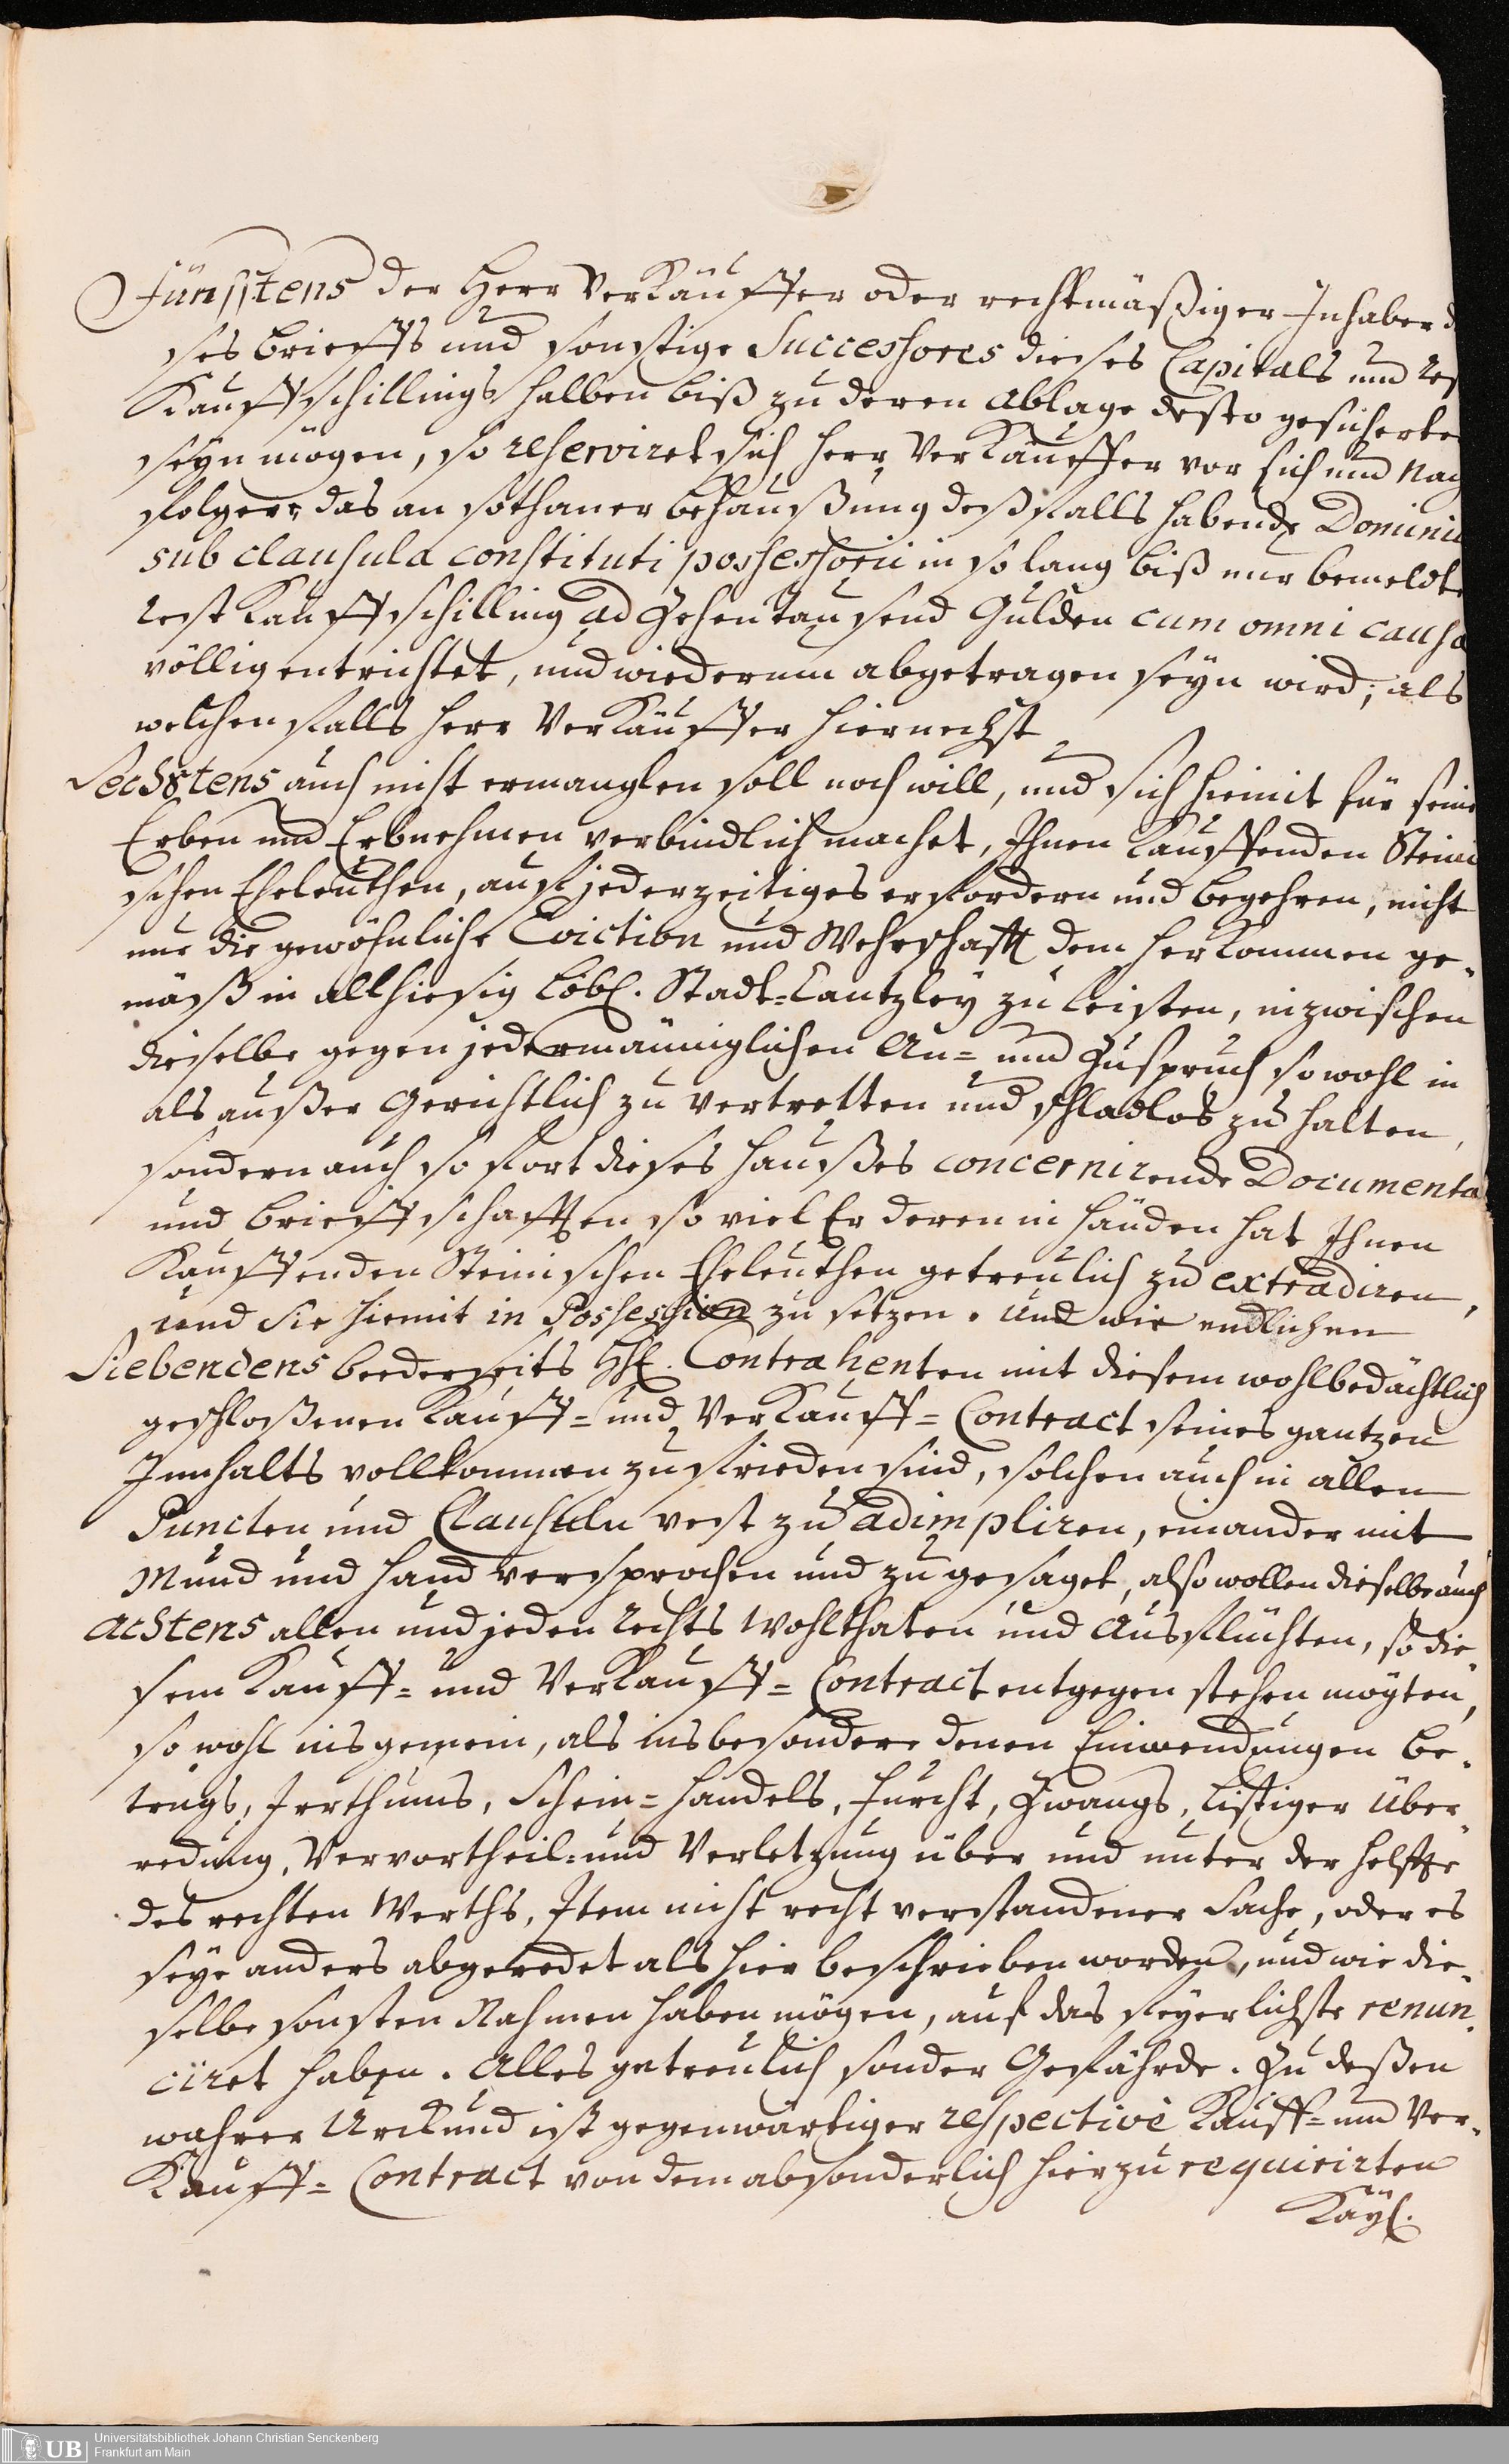 Fünfftens der Herr Verkäuffer oder rechtmäßiger Inhaber d
ses brieffs und sonstige Successores dieses Capitals und Res
Kauffschillings halben biß zu deren ablage desto gesicherte
seyn mögen, so reserviret sich Herr Verkäuffer vor sich und Nach
folgere das an sothaner behaußung deßfalls habende Dominiu
sub clausula constituti possessorii in so lang biß nur bemeldte
Rest Kauffschilling ad Zehentausend Gulden cum omni causa
völlig entrichtet, und wiederum abgetragen seyn wird, als
welchen falls Herr Verkäuffer hiernechst
Sechstens auch nicht ermanglen soll noch will, und sich hiemit für seine
Erben und Erbnehmen verbindlich machet, Ihnen Kauffenden Steini
schen Eheleuthen, auf jederzeitiges erfordern und begehren, nicht
nur die gewöhnliche Eviction und Wehrschafft dem herkommen ge-
mäß in allhiesig Löbl. Stadt=Cantzley zu leisten, inzwischen
dieselbe gegen jedermänniglichen An= und Zuspruch sowohl in
als außer Gerichtlich zu vertretten und schladlos zu halten,
sondern auch so fort dieses Haußes concernirende Documenta
und brieffschafften so viel Er deren in händen hat Ihnen
Kauffenden Steinischen Eheleuthen getreulich zu extradiren,
und sie hiemit in Possession zu setzen. Und wie endlichen
Siebendens beederseits HH. Contrahenten mit diesem wohlbedächtlich
geschloßenen Kauff= und Verkauff=Contract seines gantzen
Innhalts vollkommen zufrieden sind, solchen auch in allen
Puncten und Clausuln vest zu adimpliren, einander mit
Mund und Hand versprochen und zugesaget, also wollen dieselbe auch
achtens allen und jeden Rechts Wohlthaten und Ausflüchten, so die-
sem Kauff= und Verkauff=Contract entgegen stehen mögten,
so wohl insgemein, als insbesondere denen Einwendungen be-
trugs, Irrthums, Schein=Handels, Furcht, Zwangs, Listiger Über-
redung, Vervortheil= und Verletzung über und unter der Helffte
des rechten Werths, Item nicht recht verstandener Sache, oder es
seye anders abgeredet als hier beschrieben worden, und wie die-
selbe sonsten Nahmen haben mögen, auf das feyerlichste renun-
ciret haben. Alles getreulich sonder Gefährde. Zu deßen
wahrer Urkund ist gegenwärtiger respectivè Kauff= und Ver-
Kauff=Contract von dem absonderlich hierzu requirirten
Käyl.
Universitätsbibliothek Johann Christian Senckenberg
UB Frankfurt am Main